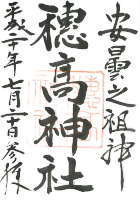 安曇之祖神
穂高神社
平成二十年七月二十日参拝